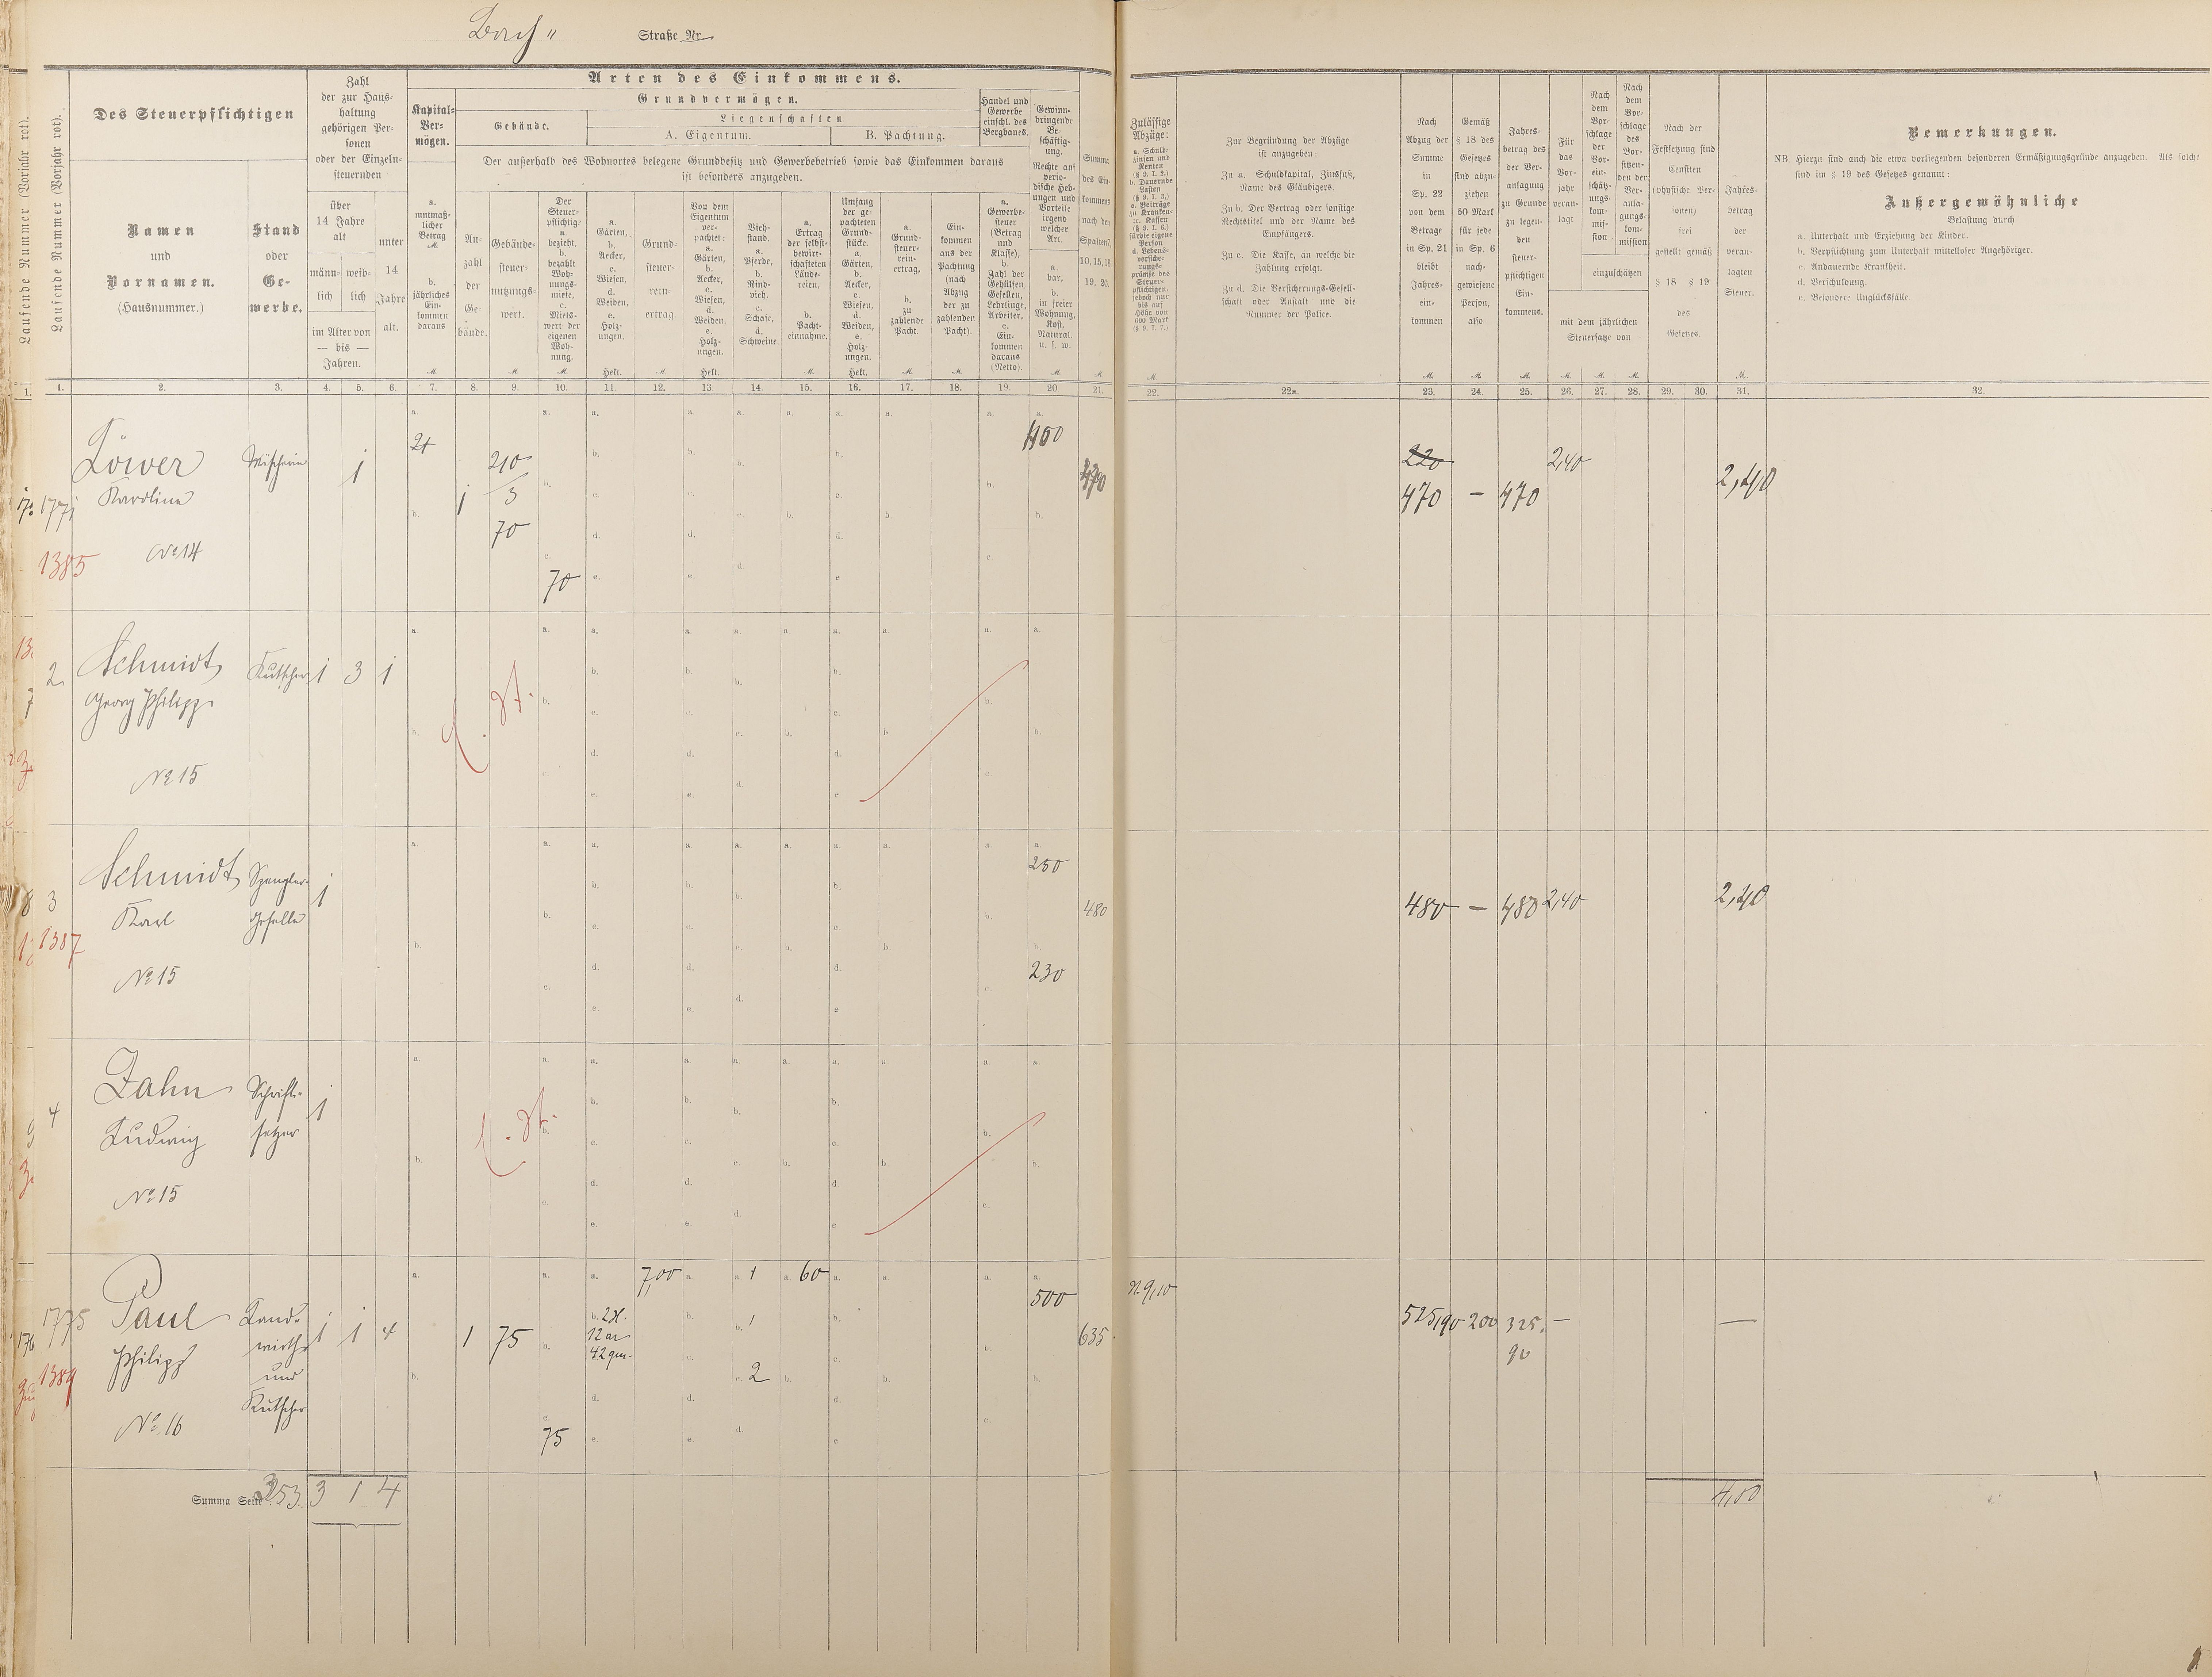 Bach „ Straße Nr.
Laufende Nummer (Vorjahr rot).
Laufende Nummer (Vorjahr rot).
Des Steuerpflichtigen
Namen
und
Vornamen.
(Hausnummer.)
Stand
oder
Ge-
werbe.
Zahl
der zur Haus-
haltung
gehörigen Per-
sonen
oder der Einzeln-
steuernden
über
14 Jahre
alt
männ-
lich
weib-
lich
im Alter von
— bis —
Jahren.
unter
14
Jahre
alt.
Arten des Einkommens.
Kapital-
Ver-
mögen.
a.
mutmaß-
licher
Betrag
M.
b.
jährliches
Ein-
kommen
daraus
M
Grundvermögen.
Gebäude.
Liegenschaften
A. Eigentum.
B. Pachtung.
Der außerhalb des Wohnortes belegene Grundbesitz und Gewerbebetrieb sowie das Einkommen daraus
ist besonders anzugeben.
An-
zahl
der
Ge-
bäude.
Gebäude-
steuer-
nutzungs-
wert.
M
Der
Steuer-
pflichtig:
a.
bezieht,
b.
bezahlt
Woh-
nungs-
miete,
c.
Miets-
wert der
eigenen
Woh-
nung.
M.
a.
Gärten,
b.
Aecker,
c.
Wiesen,
d.
Weiden,
e.
Holz-
ungen.
Hekt.
Grund-
steuer-
rein-
ertrag
M.
Von dem
Eigentum
ver-
pachtet:
a.
Gärten,
b.
Aecker,
c.
Wiesen,
d.
Weiden,
e.
Holz-
ungen.
Hekt.
Vieh-
stand.
a.
Pferde,
b.
Rind-
vieh,
c.
Schafe,
d.
Schweine
a.
Ertrag
der selbst-
bewirt-
schafteten
Lände-
reien,
b.
Pacht-
einnahme.
M.
Umfang
der ge-
pachteten
Grund-
stücke.
a.
Gärten,
b.
Aecker,
c.
Wiesen,
d.
Weiden,
e.
Holz-
ungen.
Hekt.
a.
Grund-
steuer-
rein-
ertrag,
b.
zu
zahlende
Pacht.
M.
Ein-
kommen
aus der
Pachtung
(nach
Abzug
der zu
zahlenden
Pacht).
M
Handel und
Gewerbe
einschl. des
Bergbaues.
a.
Gewerbe-
steuer
(Betrag
und
Klasse),
b.
Zahl der
Gehülfen,
Gesellen,
Lehrlinge,
Arbeiter.
c.
Ein-
kommen
daraus
(Netto).
Gewinn-
bringende
Be-
schäftig-
ung.
Rechte auf
perio-
dische Heb-
ungen und
Vorteile
irgend
welcher
Art.
a.
bar,
b.
in freier
Wohnung,
Kost,
Natural.
u. s. w.
M
Summa
des Ein-
kommens
nach den
Spalten 7,
10, 15, 18,
19, 20.
M.
Zulässige
Abzüge:
a. Schuld-
zinsen und
Renten
(§ 9. I. 2.)
b. Dauernde
Lasten
(§ 9. I. 3.)
c. Beiträge
zu Kranken-
2c. Kassen
(§ 9. I. 6.)
für die eigene
Person
d. Lebens-
versiche-
rungs-
prämie des
Steuer-
pflichtigen,
jedoch nur
bis auf
Höhe von
600 Mark
(§ 9. I. 7.)
M.
Zur Begründung der Abzüge
ist anzugeben:
Zu a. Schuldkapital, Zinsfuß,
Name des Gläubigers.
Zu b. Der Vertrag oder sonstige
Rechtstitel und der Name des
Empfängers.
Zu c. Die Kasse, an welche die
Zahlung erfolgt.
Zu d. Die Versicherungs-Gesell-
schaft oder Anstalt und die
Nummer der Police.
Nach
Abzug der
Summe
in
Sp. 22
von dem
Betrage
in Sp. 21
bleibt
Jahres-
ein-
kommen
M.
Gemäß
§ 18 des
Gesetzes
sind abzu-
ziehen
50 Mark
für jede
in Sp. 6
nach-
gewiesene
Person,
also
M.
Jahres-
betrag des
der Ver-
anlagung
zu Grunde
zu legen-
den
steuer-
pflichtigen
Ein-
kommens.
M.
Für
das
Vor-
jahr
veran-
lagt
Nach
dem
Vor-
schlage
der
Vor-
ein-
schätz-
ungs-
kom-
mis-
sion
Nach
dem
Vor-
schlage
des
Vor-
sitzen-
den der
Ver-
anla-
gungs-
kom-
mission
einzuschätzen
mit dem jährlichen
Steuersatze von
M. M. M.
Nach der
Festsetzung sind
Censiten
(physische Per-
sonen)
frei
gestellt gemäß
§ 18 § 19
des
Gesetzes.
Jahres-
betrag
der
veran-
lagten
Steuer.
M.
Bemerkungen.
NB Hierzu sind auch die etwa vorliegenden besonderen Ermäßigungsgründe anzugeben. Als solche
sind im § 19 des Gesetzes genannt:
Außergewöhnliche
Belastung durch
a. Unterhalt und Erziehung der Kinder.
b. Verpflichtung zum Unterhalt mittelloser Angehöriger.
c. Andauernde Krankheit.
d. Verschuldung.
e. Besondere Unglücksfälle.
1. 1. 2. 3. 4. 5. 6. 7. 8. 9. 10. 11. 12. 13. 14. 15. 16. 17. 18. 19. 20. 21. 22. 22a. 23. 24. 25. 26. 27. 28. 29. 30. 31. 32.
1771
1385
Löwer
Karoline
No 14
Wäscherin
1
1
210
3
70
70
400
470
220
470 — 470
2,40
2,40
2.
Schmidt
Georg Philipp
No 15
Kutscher
1 3 1
3
1387
Schmidt
Karl
No 15
Spengler-
geselle
1
250
230
480
480 — 480 2,40
2,40
4
Zahn
Ludwig
No 15
Schrift-
setzer
1
1775
1389
Paul
Philipp
No 16
Land-
wirth
und
Kutscher
1 1 4
1 75
75
b. 2 H.
12 ar
42 qm.
7,00
1
1
2
60
500
635
9,10
525,90 200 325.
90
—
—
Summa Seite 353. 3 1 4
4,80